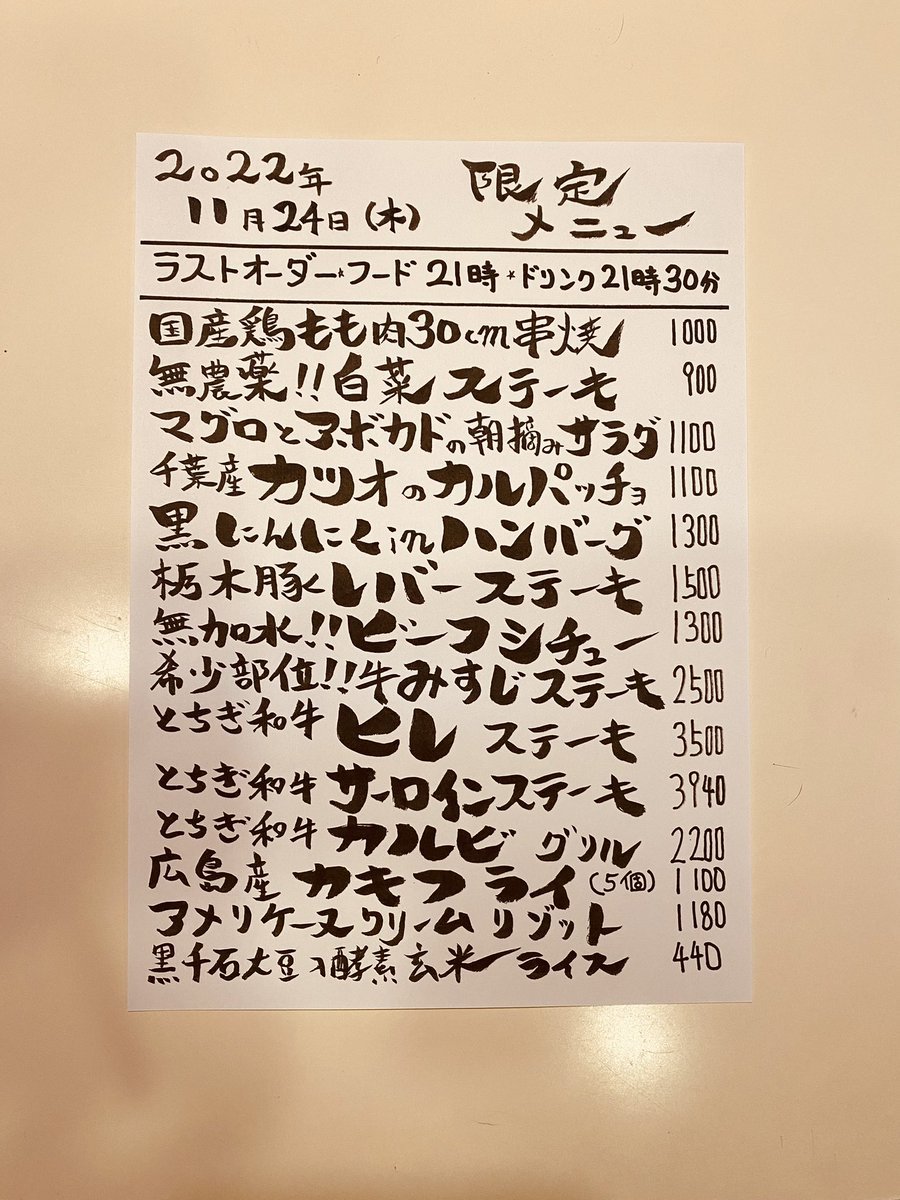 2022年
11月24日(木)
限定
メニュー
ラストオーダー*フード 21時 *ドリンク21時30分
国産鶏もも肉30cm串焼 1000
無農薬!!白菜ステーキ 900
マグロとアボカドの朝摘みサラダ 1100
千葉産カツオのカルパッチョ 1100
黒にんにくinハンバーグ 1300
栃木豚レバーステーキ 1500
無加水!!ビーフシチュー 1300
希少部位!!牛みすじステーキ 2500
とちぎ和牛ヒレステーキ 3500
とちぎ和牛サーロインステーキ 3940
とちぎ和牛カルビグリル 2200
広島産カキフライ(5個) 1100
アメリケーヌクリームリゾット 1180
黒千石大豆入酵素玄米ライス 440